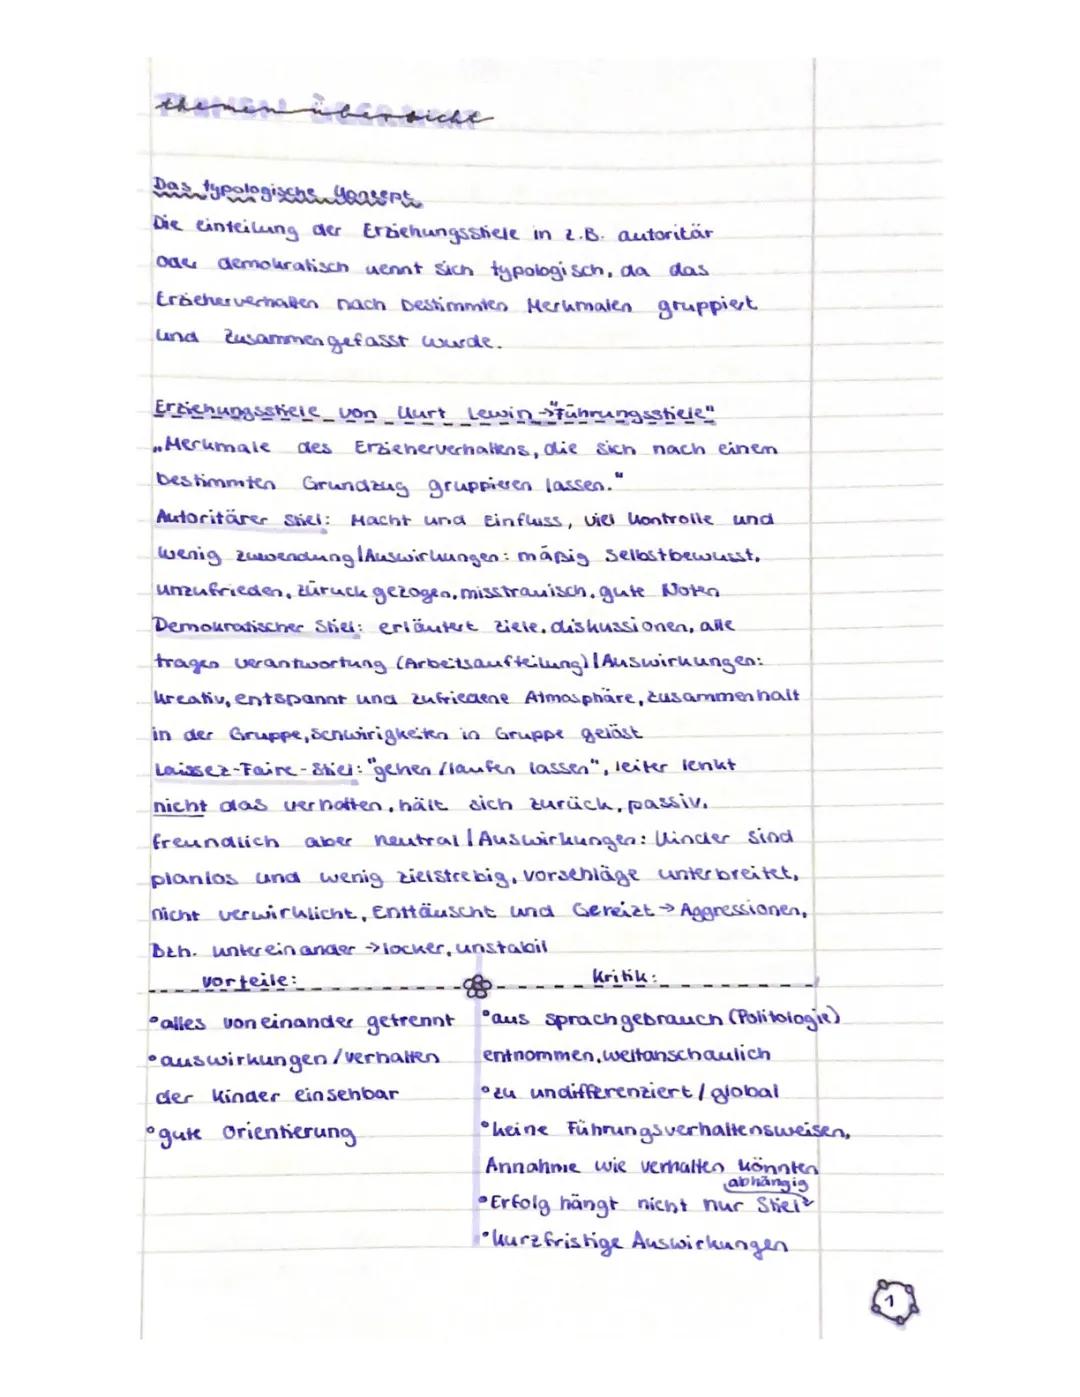 themenübersicht
Das typologische Konzept
Die einteilung der Erziehungsstiele in z.B. autoritär
oder demokratisch nennt sich typologisch, da das
Erzieherverhalten nach bestimmten Merkmalen gruppiert
und zusammengefasst wurde.
Erziehungsstiele von Kurt Lewin → "Führungsstiele"
„Merkmale des Erzieherverhaltens, die sich nach einem
bestimmten Grundzug gruppieren lassen."
Autoritärer Stiel: Macht und Einfluss, viel Kontrolle und
wenig zuwendung | Auswirkungen: mäßig Selbstbewusst,
unzufrieden, zürück gezogen, misstrauisch, gute Noten
Demokratischer Stiel: erläutert ziele, diskussionen, alle
tragen verantwortung (Arbeitsaufteilung) | Auswirkungen:
kreativ, entspannt und zufriedene Atmosphäre, zusammenhalt
in der Gruppe, Schwirigkeiten in Gruppe gelöst
Laissez-Faire-Stiel: "gehen/laufen lassen", leiter lenkt
nicht das verhalten, hält sich zurück, passiv,
freundlich aber neutral | Auswirkungen: Kinder sind
planlos und wenig zielstrebig, vorschläge unterbreitet,
nicht verwirklicht, Enttäuscht und Gereizt → Aggressionen,
Bzh. untereinander → locker, unstabil
vorteile: Kritik:
° alles voneinander getrennt
° auswirkungen/verhalten
der Kinder einsehbar
° gute Orientierung
° aus sprachgebrauch (Politologie)
entnommen, weltanschaulich
° zu undifferenziert/global
° keine Führungsverhaltensweisen,
Annahme wie verhalten könnten
° Erfolg hängt nicht nur Stiel abhängig
° kurzfristige Auswirkungen
1